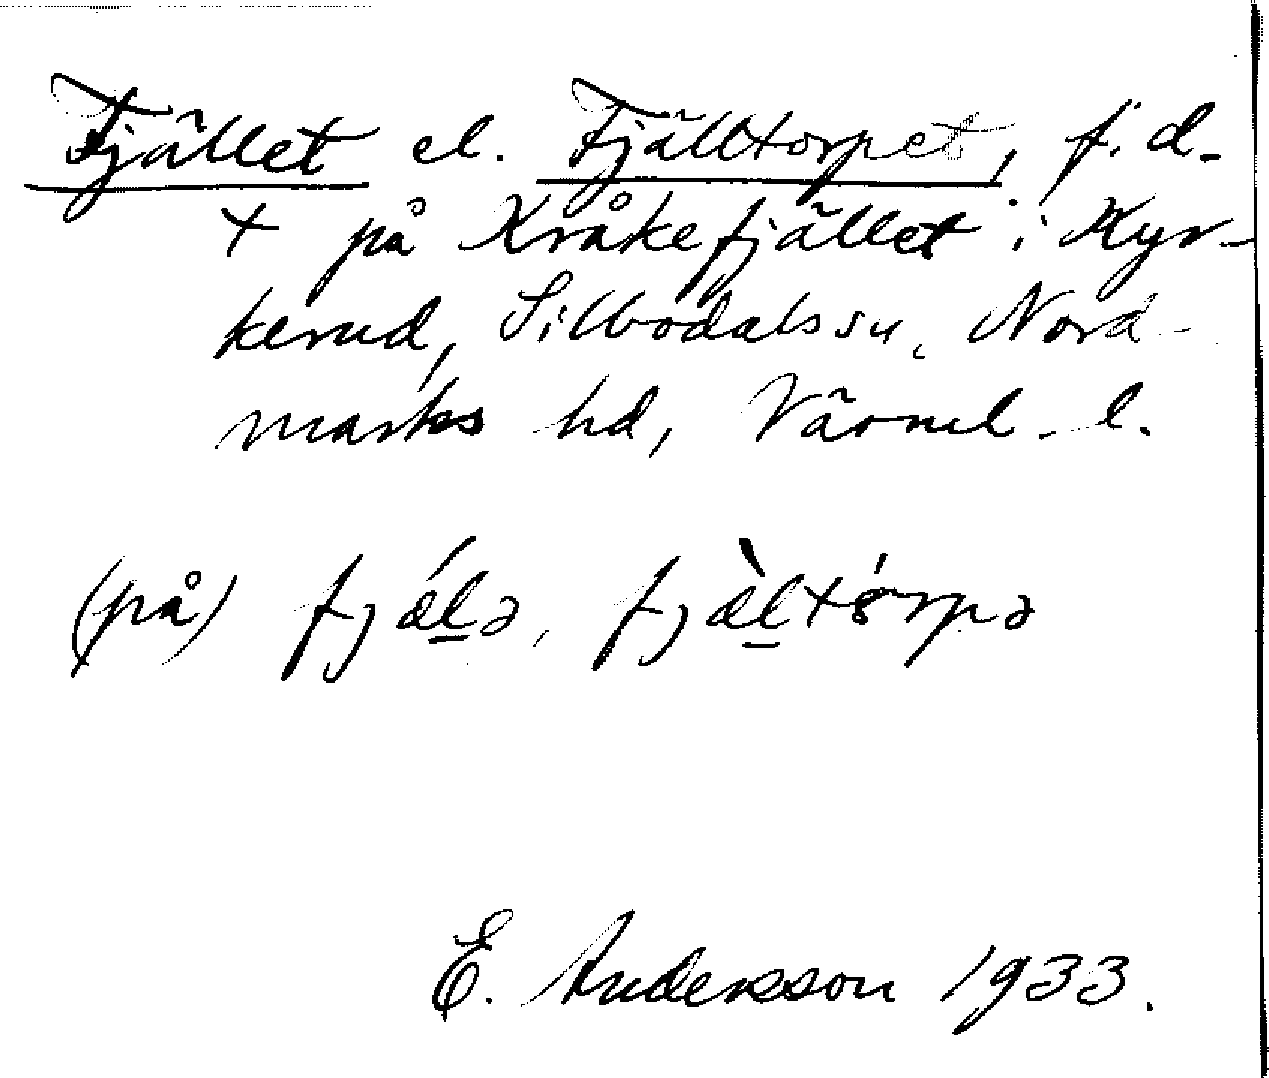 Fjället el. Fjälltorpet, f.d.
t på Kråkefjället i Kyr-
kerud, Silbodals sn, Nord-
marks hd, Värml. l.
(på) fjä́lə, fjä̀ltórpə
E. Andersson 1933.